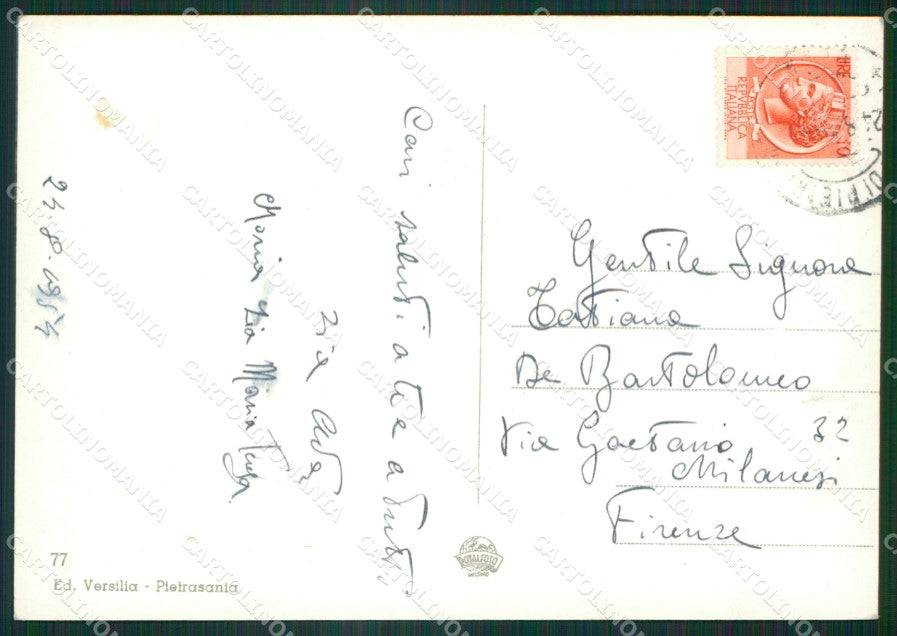 24.8.1954
Cari saluti a te e a tutti
zia Ada
Maria Zia Maria Luisa
LIRE
REPVBBLICA
ITALIANA
Gentile Signora
Tatiana
De Bartolomeo
Via Gaetano 32
Milanesi
Firenze
77
Ed. Versilia - Pietrasanta
ROTALFOTO
MILANO
CARTOLINOMANIA